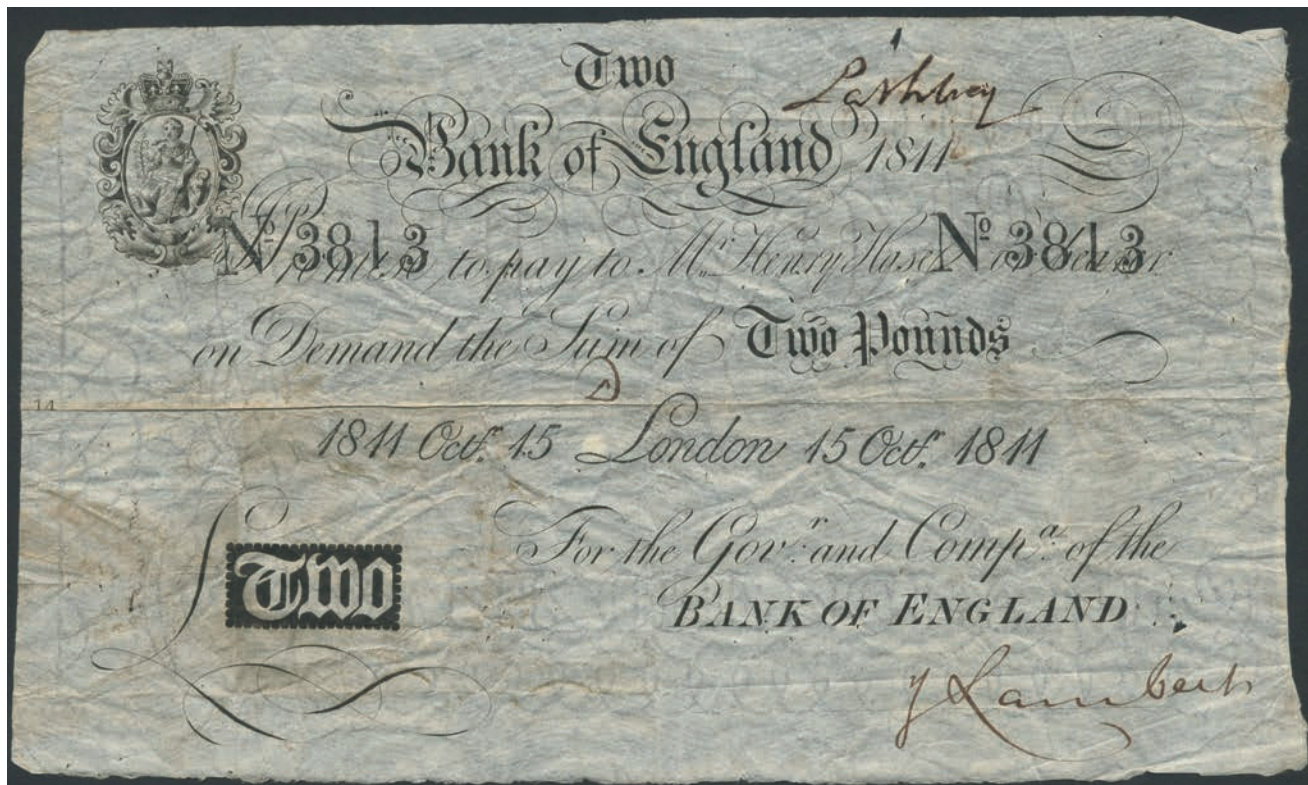 Two
Bank of England 1811
Nº 3813 Nº 3813
I Promise to pay to Mr. Henry Hase or Bearer
on Demand the Sum of Two Pounds
14
1811 Octr. 15 London 15 Octr. 1811
For the Govr. and Compa. of the
£ Two
BANK OF ENGLAND
J Lambert